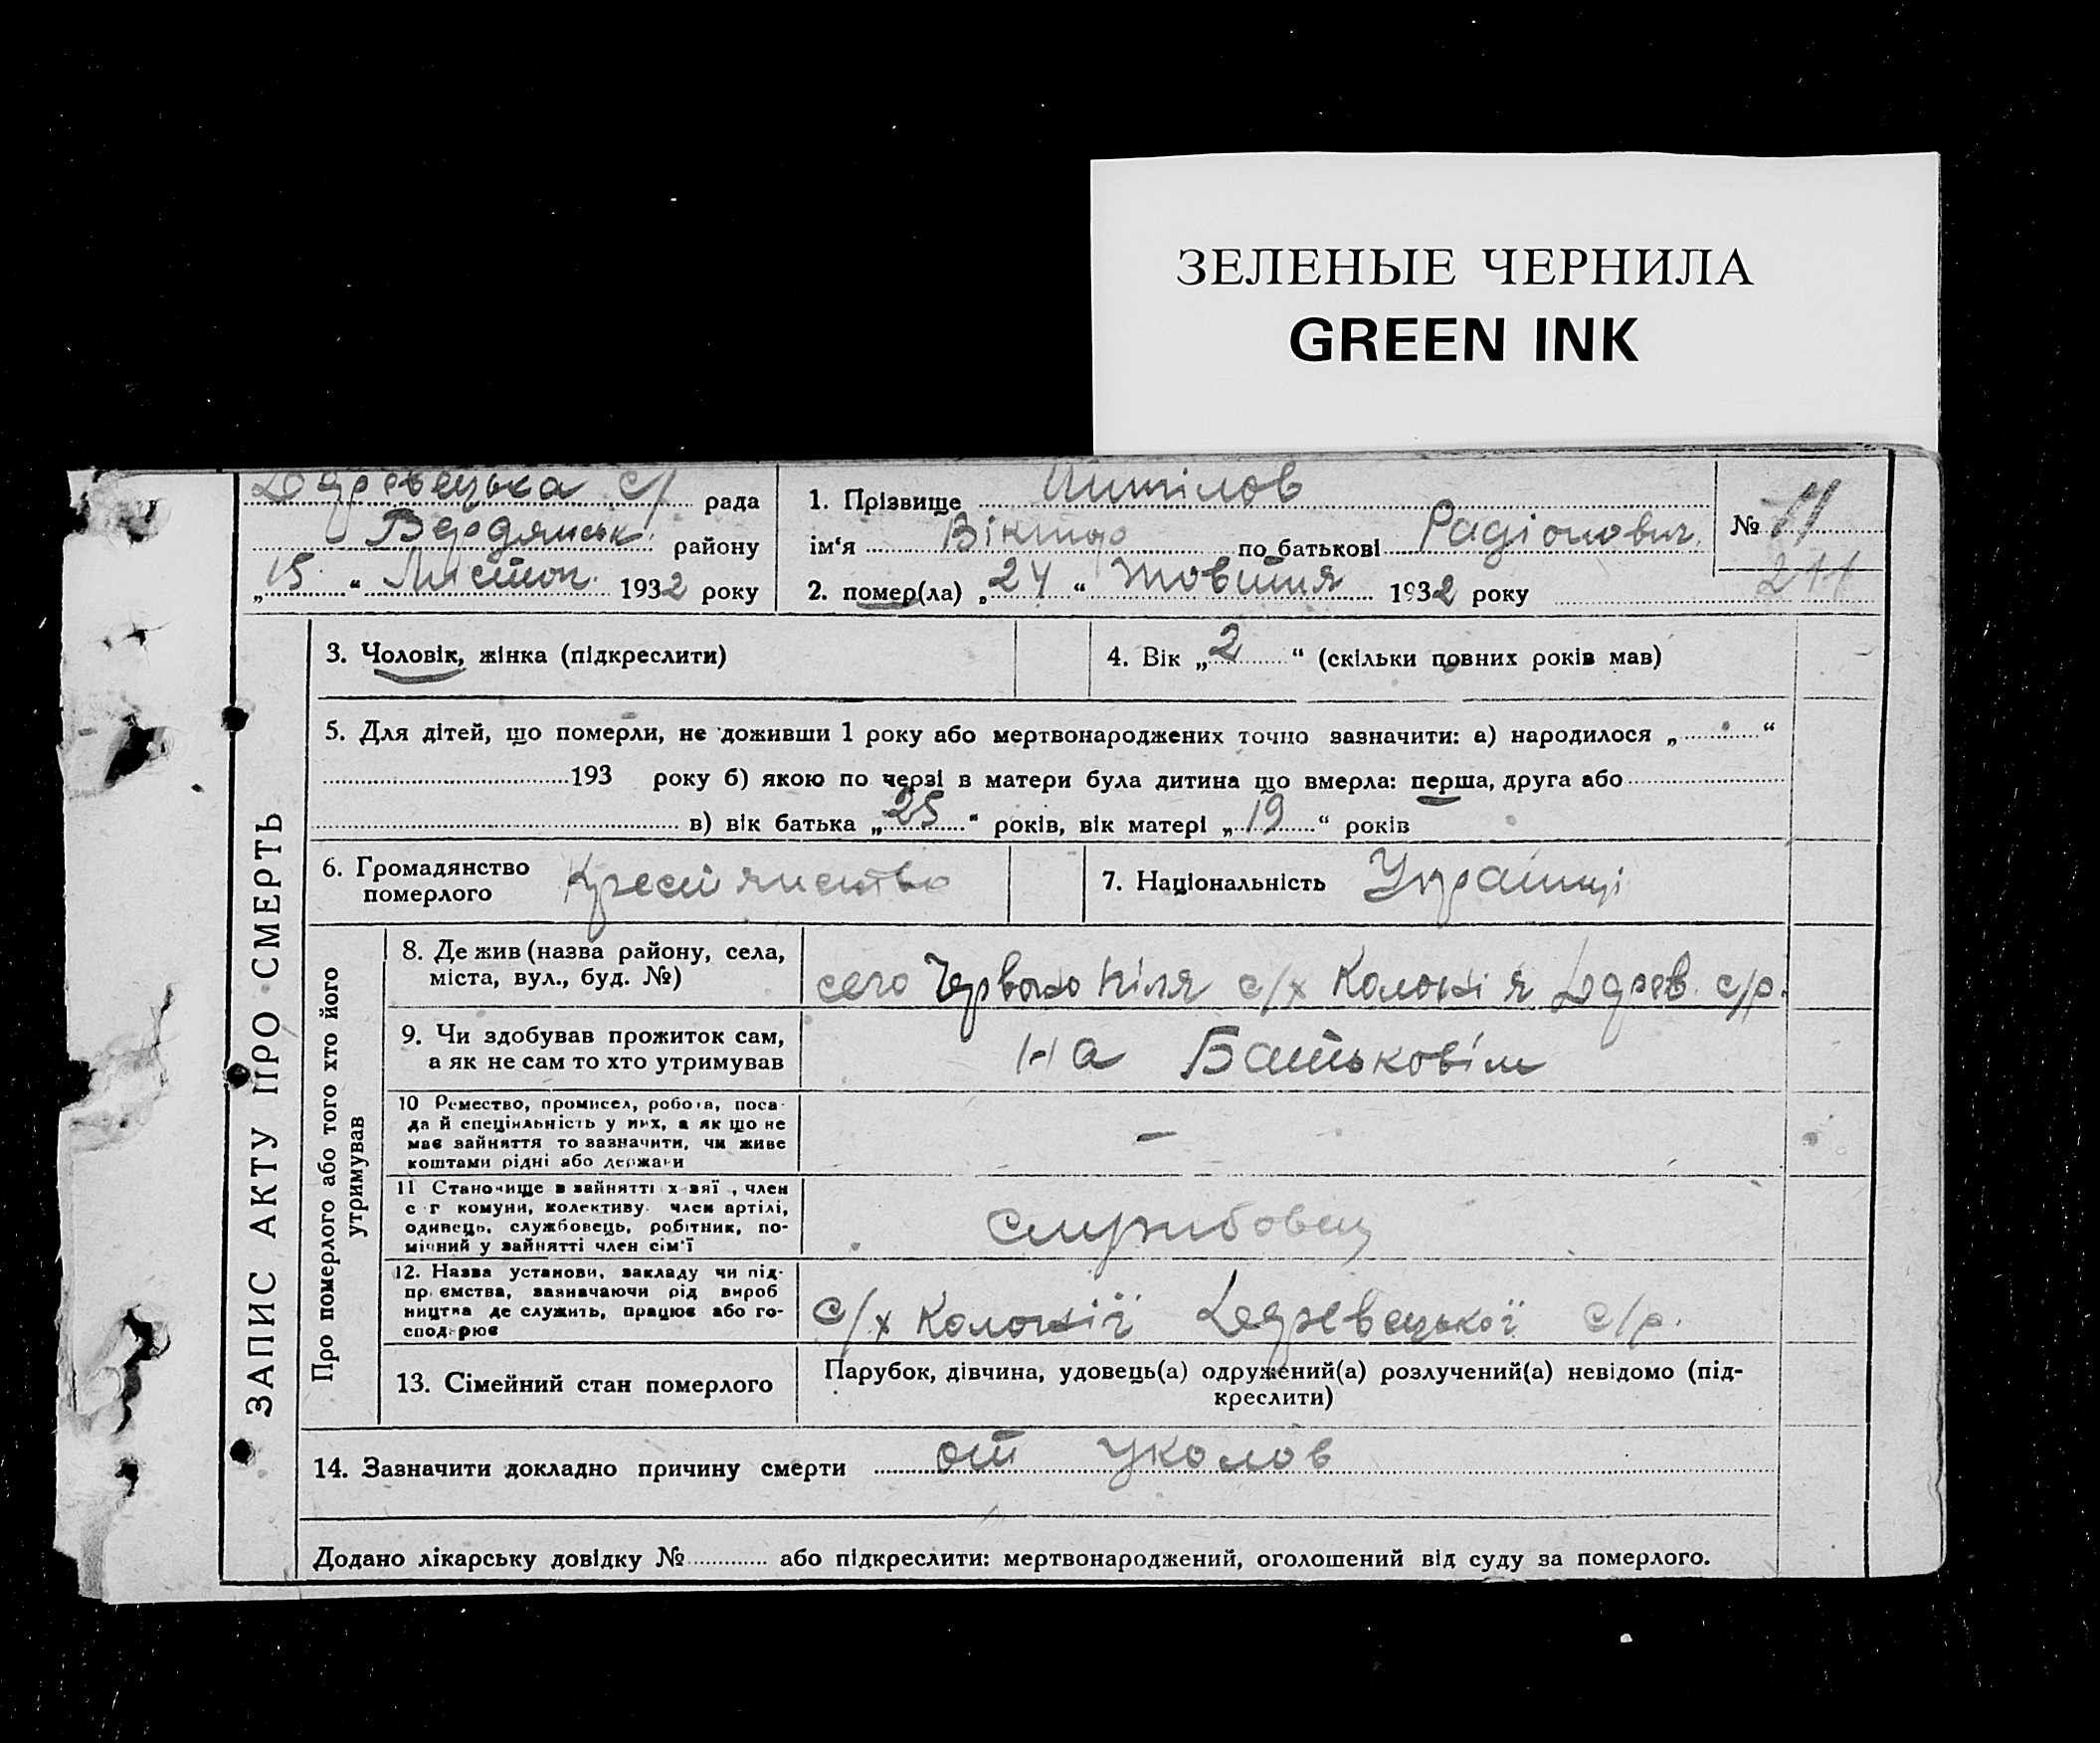 ЗЕЛЕНЫЕ ЧЕРНИЛА
GREEN INK
с/ рада
Бердянськ району
„15“ Листоп. 1932 року
1. Прізвище
ім‘я Віктор по батькові Радіонович
2. помер(ла) „24“ Жовтня 1932 року
№ 11
211
ЗАПИС АКТУ ПРО СМЕРТЬ
3. Чоловік, жінка (підкреслити)
4. Вік „2“ (скільки повних років мав)
5. Для дітей, що померли, не доживши 1 року або мертвонароджених точно зазначити: а) народилося „ “
193 року б) якою по черзі в матери була дитина що вмерла: перша, друга або
в) вік батька „25“ років, вік матері „19“ років
6. Громадянство
померлого
7. Національність Українці
Про померлого або того хто його
утримував
8. Де жив (назва району, села,
міста, вул., буд. №)
село Червоно Піля с/х Колонія с/р.
9. Чи здобував прожиток сам,
а як не сам то хто утримував
на Батьковім
10 Ремество, промисел, робота, поса-
да й спеціяльність у них, а як що не
має зайняття то зазначити, чи живе
коштами рідні або держави
–
11 Становище в зайнятті , член
с г комуни, колективу член артілі,
одинець, службовець, робітник, по-
мічний у зайнятті член сім‘ї
службовец
12. Назва установи, закладу чи під-
приємства, зазначаючи рід вироб
ництва де служить, працює або го-
сподарює
с/х Колонії с/р.
13. Сімейний стан померлого
Парубок, дівчина, удовець(а) одружений(а) розлучений(а) невідомо (під-
креслити)
14. Зазначити докладно причину смерти от уколов
Додано лікарську довідку № або підкреслити: мертвонароджений, оголошений від суду за померлого.